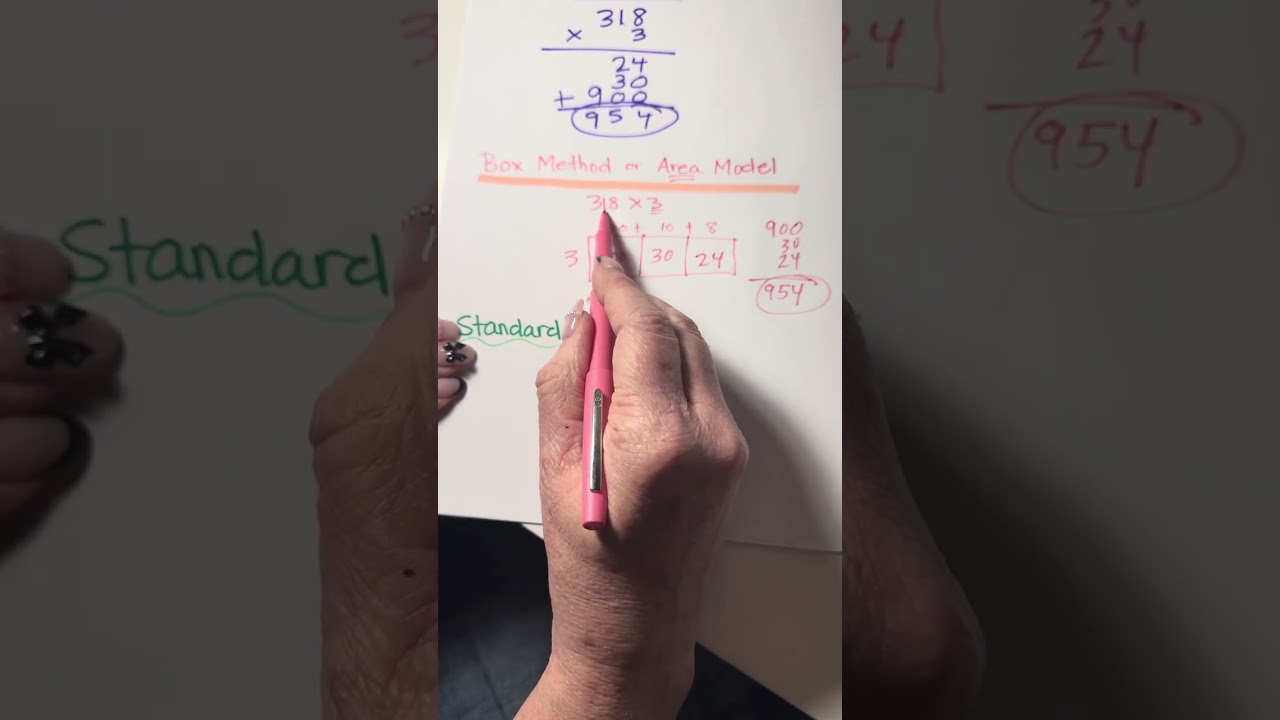 318
× 3
24
30
+ 900
954
Box Method or Area Model
318 × 3
+ 10 + 8
900
3 30 24
30
24
954
Standard